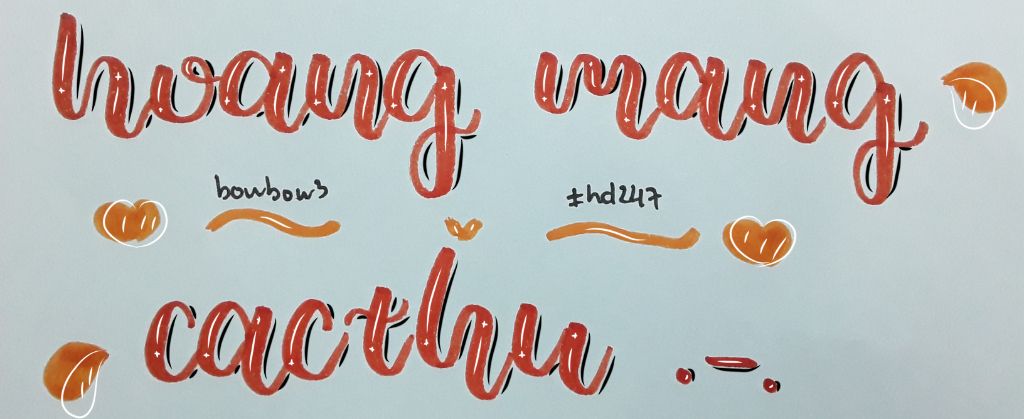 hoang mang
bowbow3 #hd247
cacthu .-.